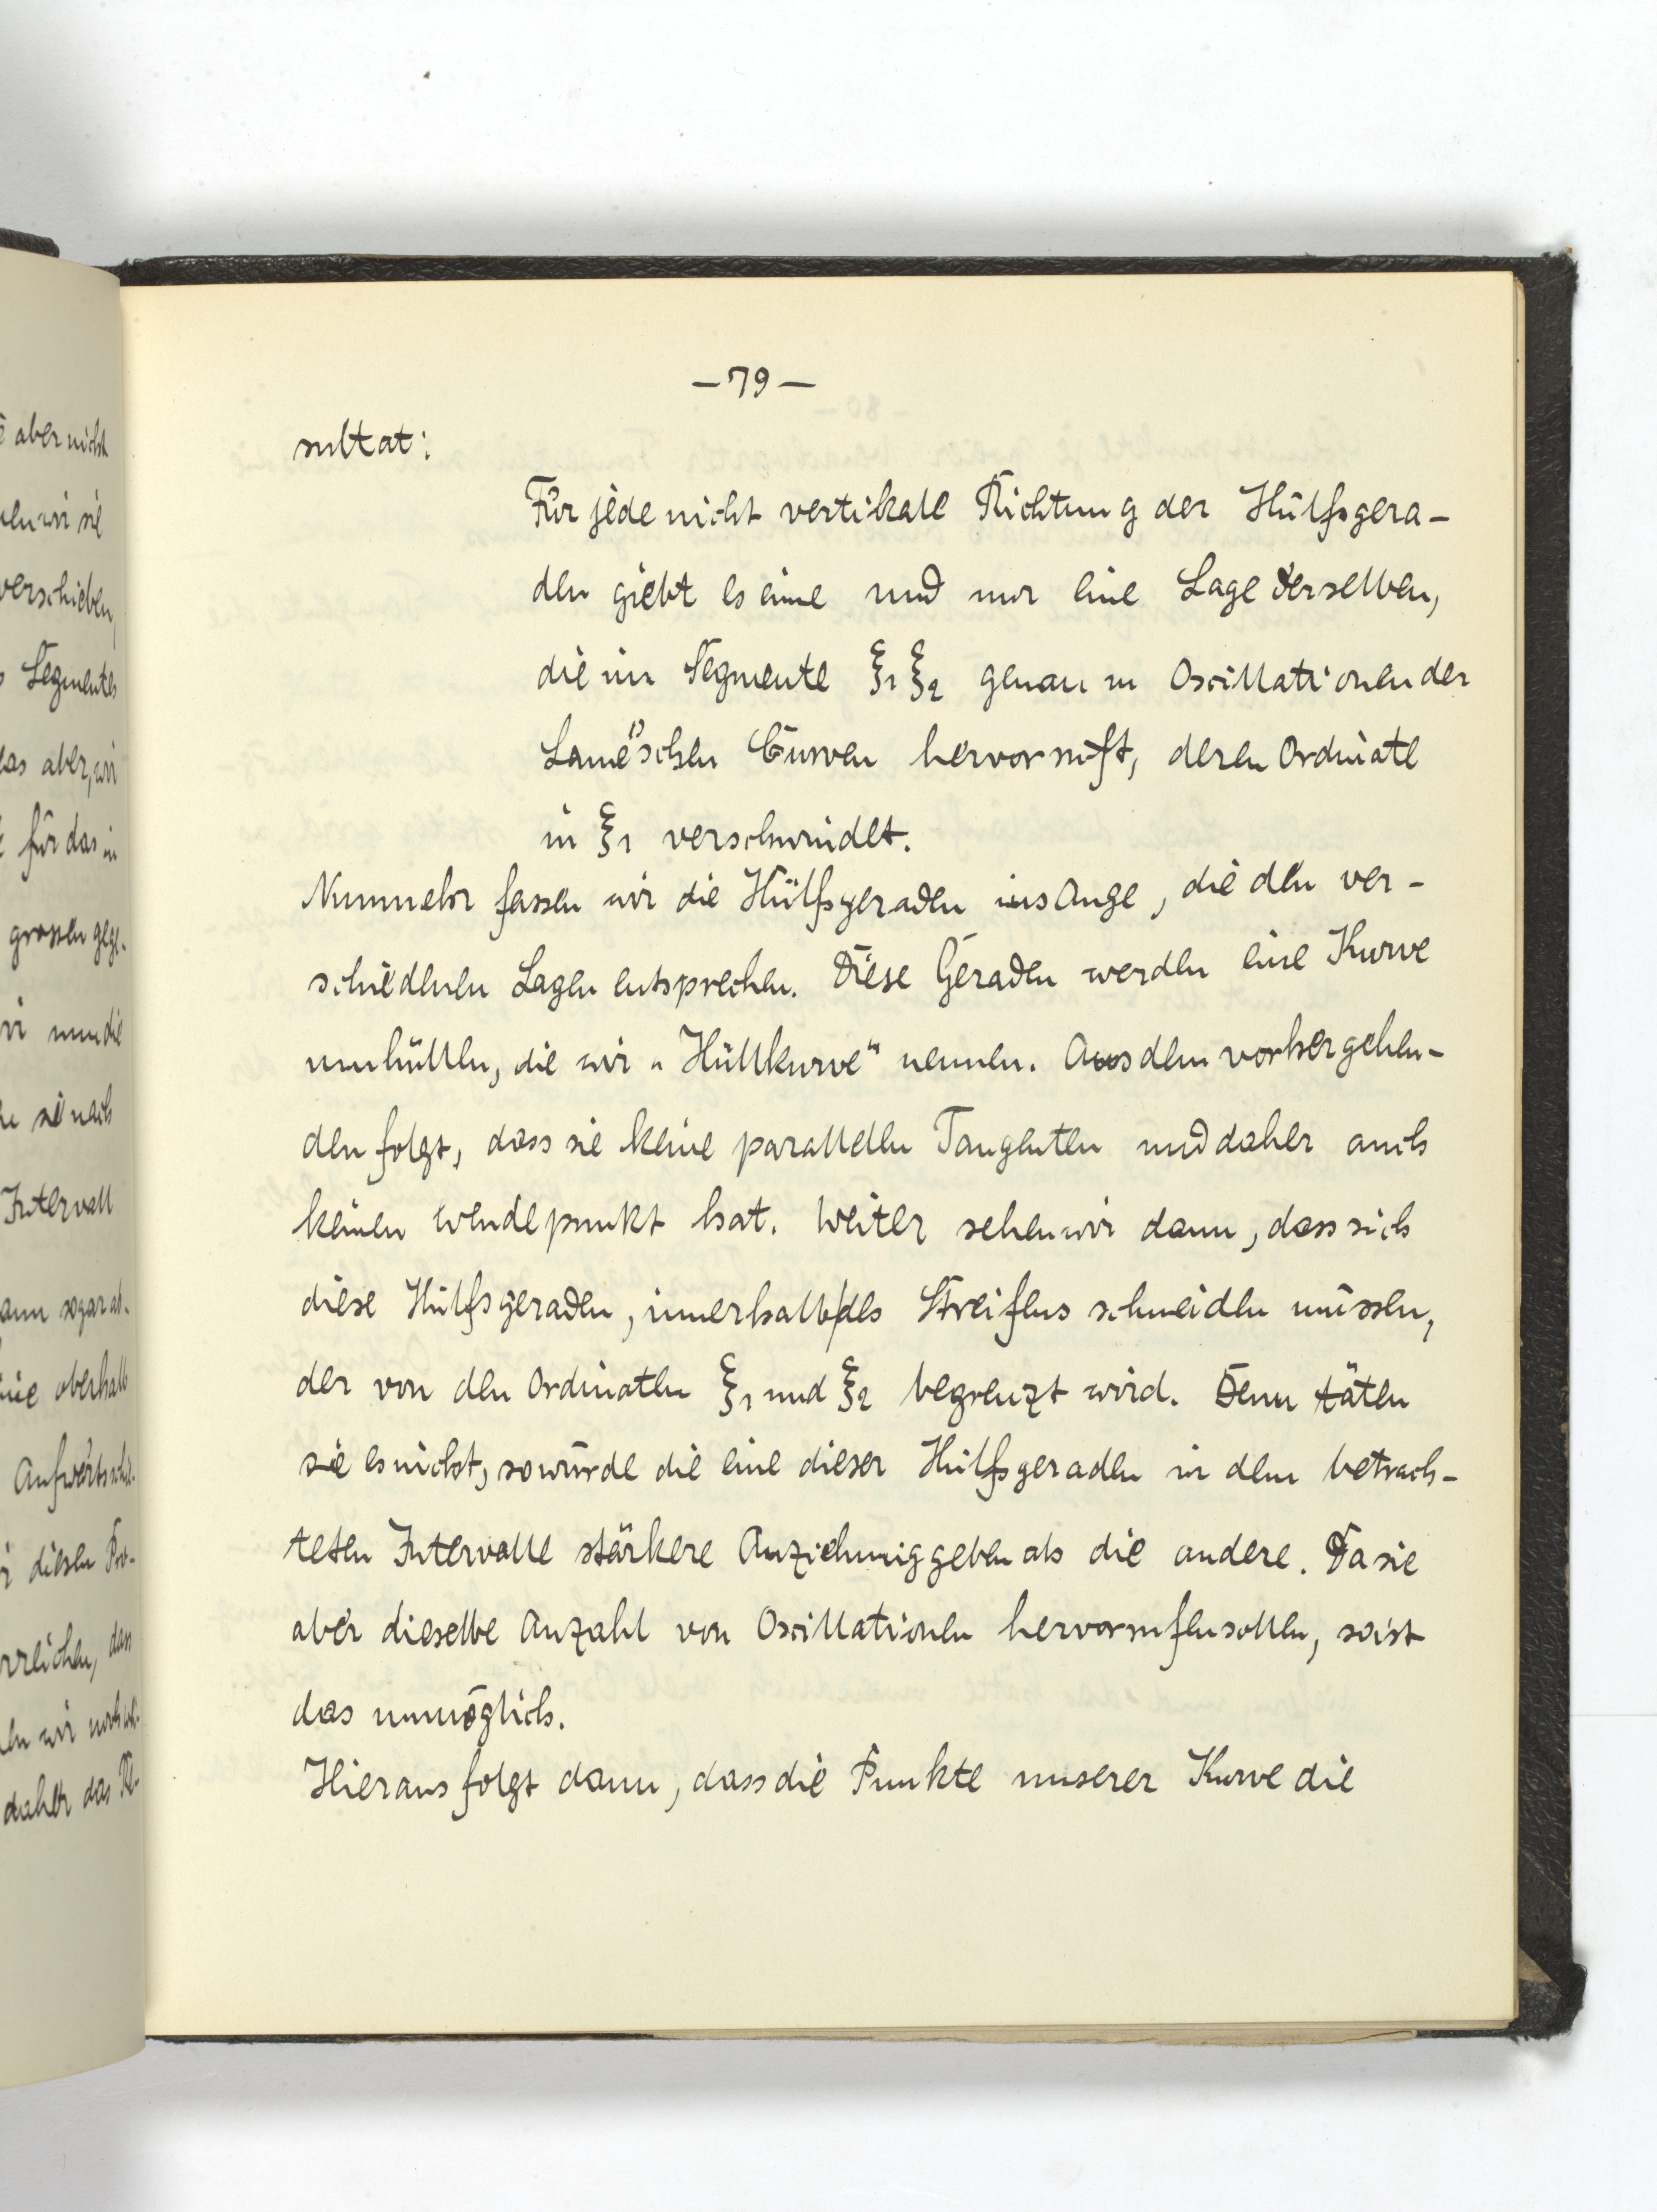 — 79 —
sultat:
Für jede nicht vertikale Richtung der Hülfsgera-
den giebt es eine und nur eine Lage derselben,
die im Segmente ξ₁ ξ₂ genau m Oscillationen der
Lamé'schen Curven hervorruft, deren Ordinate
in ξ₁ verschwindet.
Nunmehr fassen wir die Hülfsgeraden ins Auge, die den ver-
schiedenen Lagen entsprechen. Diese Geraden werden eine Kurve
umhüllen, die wir „Hüllkurve“ nennen. Aus dem vorhergehen-
den folgt, dass sie keine parallelen Tangenten und daher auch
keinen Wendepunkt hat. Weiter sehen wir dann, dass sich
diese Hülfsgeraden, innerhalb des Streifens schneiden müssen,
der von den Ordinaten ξ₁ und ξ₂ begrenzt wird. Denn täten
sie es nicht, so würde die eine dieser Hülfsgeraden in dem betrach-
teten Intervalle stärkere Anziehung geben als die andere. Da sie
aber dieselbe Anzahl von Oscillationen hervorrufen sollen, so ist
das unmöglich.
Hieraus folgt dann, dass die Punkte unserer Kurve die